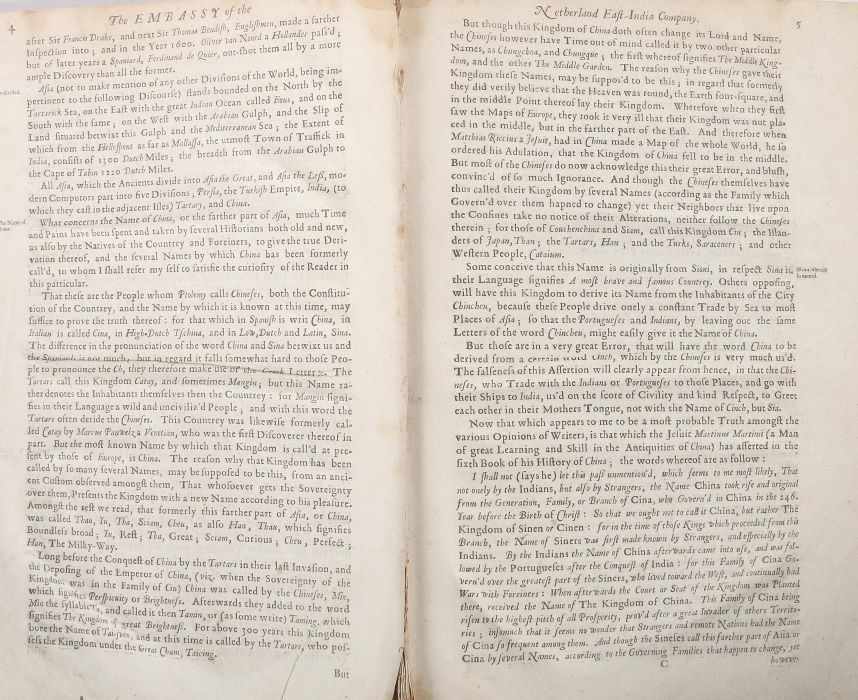 4
The EMBASSY of the
after Sir Francis Drake, and next Sir Thomas Bendish, Englishmen, made a farther
Inspection into; and in the Year 1600. Oliver van Noord a Hollander pass'd;
but of later years a Spaniard, Ferdinand de Quier, out-shot them all by a more
ample Discovery than all the former.
Asia (not to make mention of any other Divisions of the World, being im-
pertinent to the following Discourse) stands bounded on the North by the
Tartarick Sea, on the East with the great Indian Ocean called Eous, and on the
South with the same; on the West with the Arabian Gulph, and the Slip of
Land situated betwixt this Gulph and the Mediterranean Sea; the Extent of
which from the Hellespont as far as Mallassa, the utmost Town of Traffick in
India, consists of 1300 Dutch Miles; the breadth from the Arabian Gulph to
the Cape of Tabin 1220 Dutch Miles.
All Asia, which the Ancients divide into Asia the Great, and Asia the Less, mo-
dern Computors part into five Divisions; Persia, the Turkish Empire, India, (to
which they cast in the adjacent Isles) Tartary, and China.
The Name of
What concerns the Name of China, or the farther part of Asia, much Time
and Pains have been spent and taken by several Historians both old and new,
as also by the Natives of the Countrey and Foreiners, to give the true Deri-
vation thereof, and the several Names by which China has been formerly
call'd, to whom I shall refer my self to satisfie the curiosity of the Reader in
this particular.
That these are the People whom Ptolomy calls Chineses, both the Constitu-
tion of the Countrey, and the Name by which it is known at this time, may
suffice to prove the truth thereof: for that which in Spanish is writ China, in
Italian is called Cina, in High-Dutch Tschina, and in Low-Dutch and Latin, Sina.
The difference in the pronunciation of the word China and Sina betwixt us and
the Spaniards is not much, but in regard it falls somewhat hard to those Peo-
ple to pronounce the Ch, they therefore make use of the Greek Letter. The
Tartars call this Kingdom Catay, and sometimes Mangin; but this Name ra-
ther denotes the Inhabitants themselves then the Countrey: for Mangin signi-
fies in their Language a wild and uncivilia'd People; and with this word the
Tartars often deride the Chineses. This Countrey was likewise formerly cal-
led Catay by Marcus Pauwels a Venetian, who was the first Discoverer thereof in
part. But the most known Name by which that Kingdom is call'd at pre-
sent by those of Europe, is China. The reason why that Kingdom has been
called by so many several Names, may be supposed to be this, from an anci-
ent Custom observed amongst them, That whosoever gets the Sovereignty
over them, Presents the Kingdom with a new Name according to his pleasure.
Amongst the rest we read, that formerly this farther part of Asia, or China,
was called Than, Iu, Tha, Sciam, Cheu, as also Han, Than, which signifies
Boundless broad; Iu, Rest; Tha, Great; Sciam, Curious; Cheu, Perfect;
Han, The Milky-Way.
Long before the Conquest of China by the Tartars in their last Invasion, and
the Deposing of the Emperor of China, (viz. when the Sovereignty of the
Kingdom was in the Family of Cin) China was called by the Chineses, Min,
which signifies Perspicuity or Brightness. Afterwards they added to the word
Min the syllable, and called it then Tamin, or (as some write) Taming, which
signifies The Kingdom of great Brightness. For above 700 years this Kingdom
bore the Name of Taiyven, and at this time is called by the Tartars, who pos-
sess the Kingdom under the Great Cham, Taicing.
But
Netherland East-India Company.
5
But though this Kingdom of China doth often change its Lord and Name,
the Chineses however have Time out of mind called it by two other particular
Names, as Chungchoa, and Chungque; the first whereof signifies The Middle King-
dom, and the other The Middle Garden. The reason why the Chineses gave their
Kingdom these Names, may be suppos'd to be this; in regard that formerly
they did verily believe that the Heaven was round, the Earth four-square, and
in the middle Point thereof lay their Kingdom. Wherefore when they first
saw the Maps of Europe, they took it very ill that their Kingdom was not pla-
ced in the middle, but in the farther part of the East. And therefore when
Matthæus Riccius a Jesuit, had in China made a Map of the whole World, he so
ordered his Adulation, that the Kingdom of China fell to be in the middle.
But most of the Chineses do now acknowledge this their great Error, and blush,
convinc'd of so much Ignorance. And though the Chineses themselves have
thus called their Kingdom by several Names (according as the Family which
Govern'd over them hapned to change) yet their Neighbors that live upon
the Confines take no notice of their Alterations, neither follow the Chineses
therein; for those of Couchenchina and Siam, call this Kingdom Cin; the Islan-
ders of Japan, Than; the Tartars, Han; and the Turks, Saraceners; and other
Western People, Cataium.
Some conceive that this Name is originally from Sinai, in respect Sina in
their Language signifies A most brave and famous Countrey. Others opposing,
will have this Kingdom to derive its Name from the Inhabitants of the City
Chincheu, because these People drive onely a constant Trade by Sea to most
Places of Asia; so that the Portugueses and Indians, by leaving out the same
Letters of the word Chincheu, might easily give it the Name of China.
But those are in a very great Error, that will have the word China to be
derived from a certain word Cinch, which by the Chineses is very much us'd.
The falseness of this Assertion will clearly appear from hence, in that the Chi-
neses, who Trade with the Indians or Portugueses to those Places, and go with
their Ships to India, us'd on the score of Civility and kind Respect, to Greet
each other in their Mothers Tongue, not with the Name of Cinch, but Sia.
Now that which appears to me to be a most probable Truth amongst the
various Opinions of Writers, is that which the Jesuit Martinus Martini (a Man
of great Learning and Skill in the Antiquities of China) has asserted in the
sixth Book of his History of China; the words whereof are as follow:
I shall not (says he) let this pass unmention'd, which seems to me most likely, That
not onely by the Indians, but also by Strangers, the Name China took rise and original
from the Generation, Family, or Branch of Cina, who Govern'd in China in the 246.
Year before the Birth of Christ: So that we ought not to call it China, but rather The
Kingdom of Sinen or Cinen: for in the time of those Kings which proceeded from this
Branch, the Name of Sinets was first made known by Strangers, and especially by the
Indians. By the Indians the Name of China afterwards came into use, and was fol-
lowed by the Portugueses after the Conquest of India: for this Family of Cina Go-
vern'd over the greatest part of the Sineses, who lived toward the West, and continually had
Wars with Foreiners: When afterwards the Court or Seat of the Kingdom was Planted
there, received the Name of The Kingdom of China. This Family of Cina being
risen to the highest pitch of all Prosperity, prov'd after a great Invader of others Territo-
ries; insomuch that it seems no wonder that Strangers and remote Nations had the Name
of Cina so frequent among them. And though the Sineses call this farther part of Asia or
Cina by several Names, according to the Governing Families that happen to change, yet
C
however